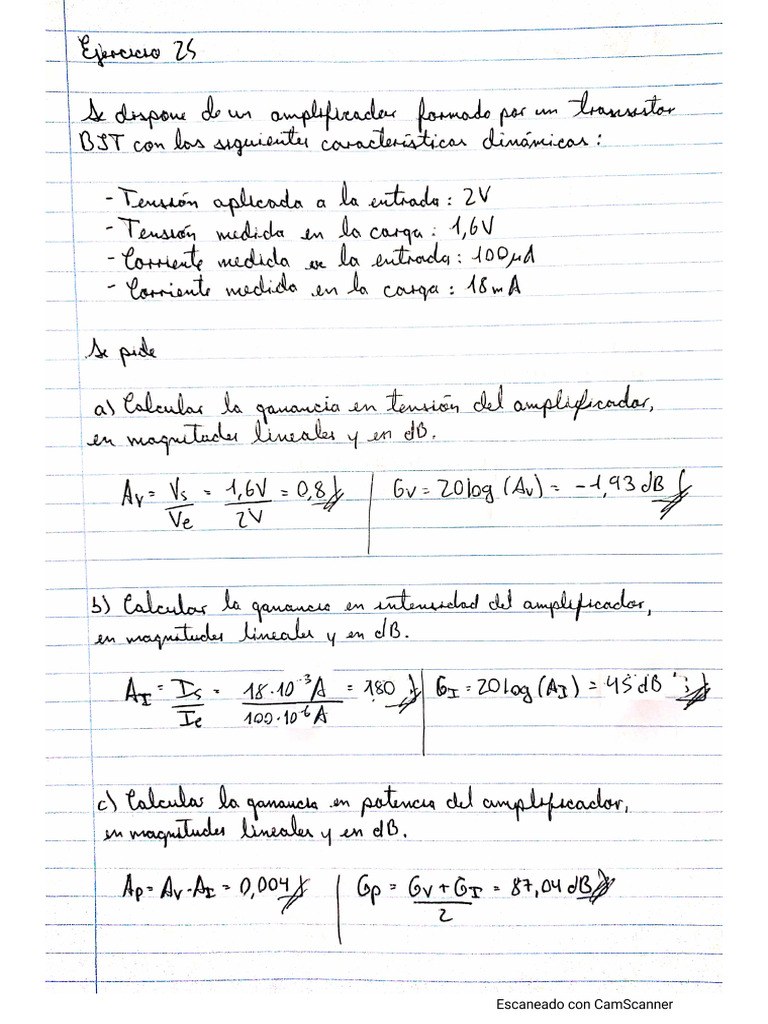 Ejercicio 25
Se dispone de un amplificador formado por un transistor
BJT con las siguientes características dinámicas:
- Tensión aplicada a la entrada: 2V
- Tensión medida en la carga: 1,6V
- Corriente medida en la entrada: 100μA
- Corriente medida en la carga: 18mA
Se pide
a) Calcular la ganancia en tensión del amplificador,
en magnitudes lineales y en dB.
Av = Vs/Ve = 1,6V/2V = 0,8 | Gv = 20log(Av) = -1,93 dB
b) Calcular la ganancia en intensidad del amplificador,
en magnitudes lineales y en dB.
AI = Is/Ie = 18·10⁻³A/100·10⁻⁶A = 180 | GI = 20log(AI) = 45 dB
c) Calcular la ganancia en potencia del amplificador,
en magnitudes lineales y en dB.
Ap = Av·AI = 0,004 | Gp = Gv+GI/2 = 87,04 dB
Escaneado con CamScanner